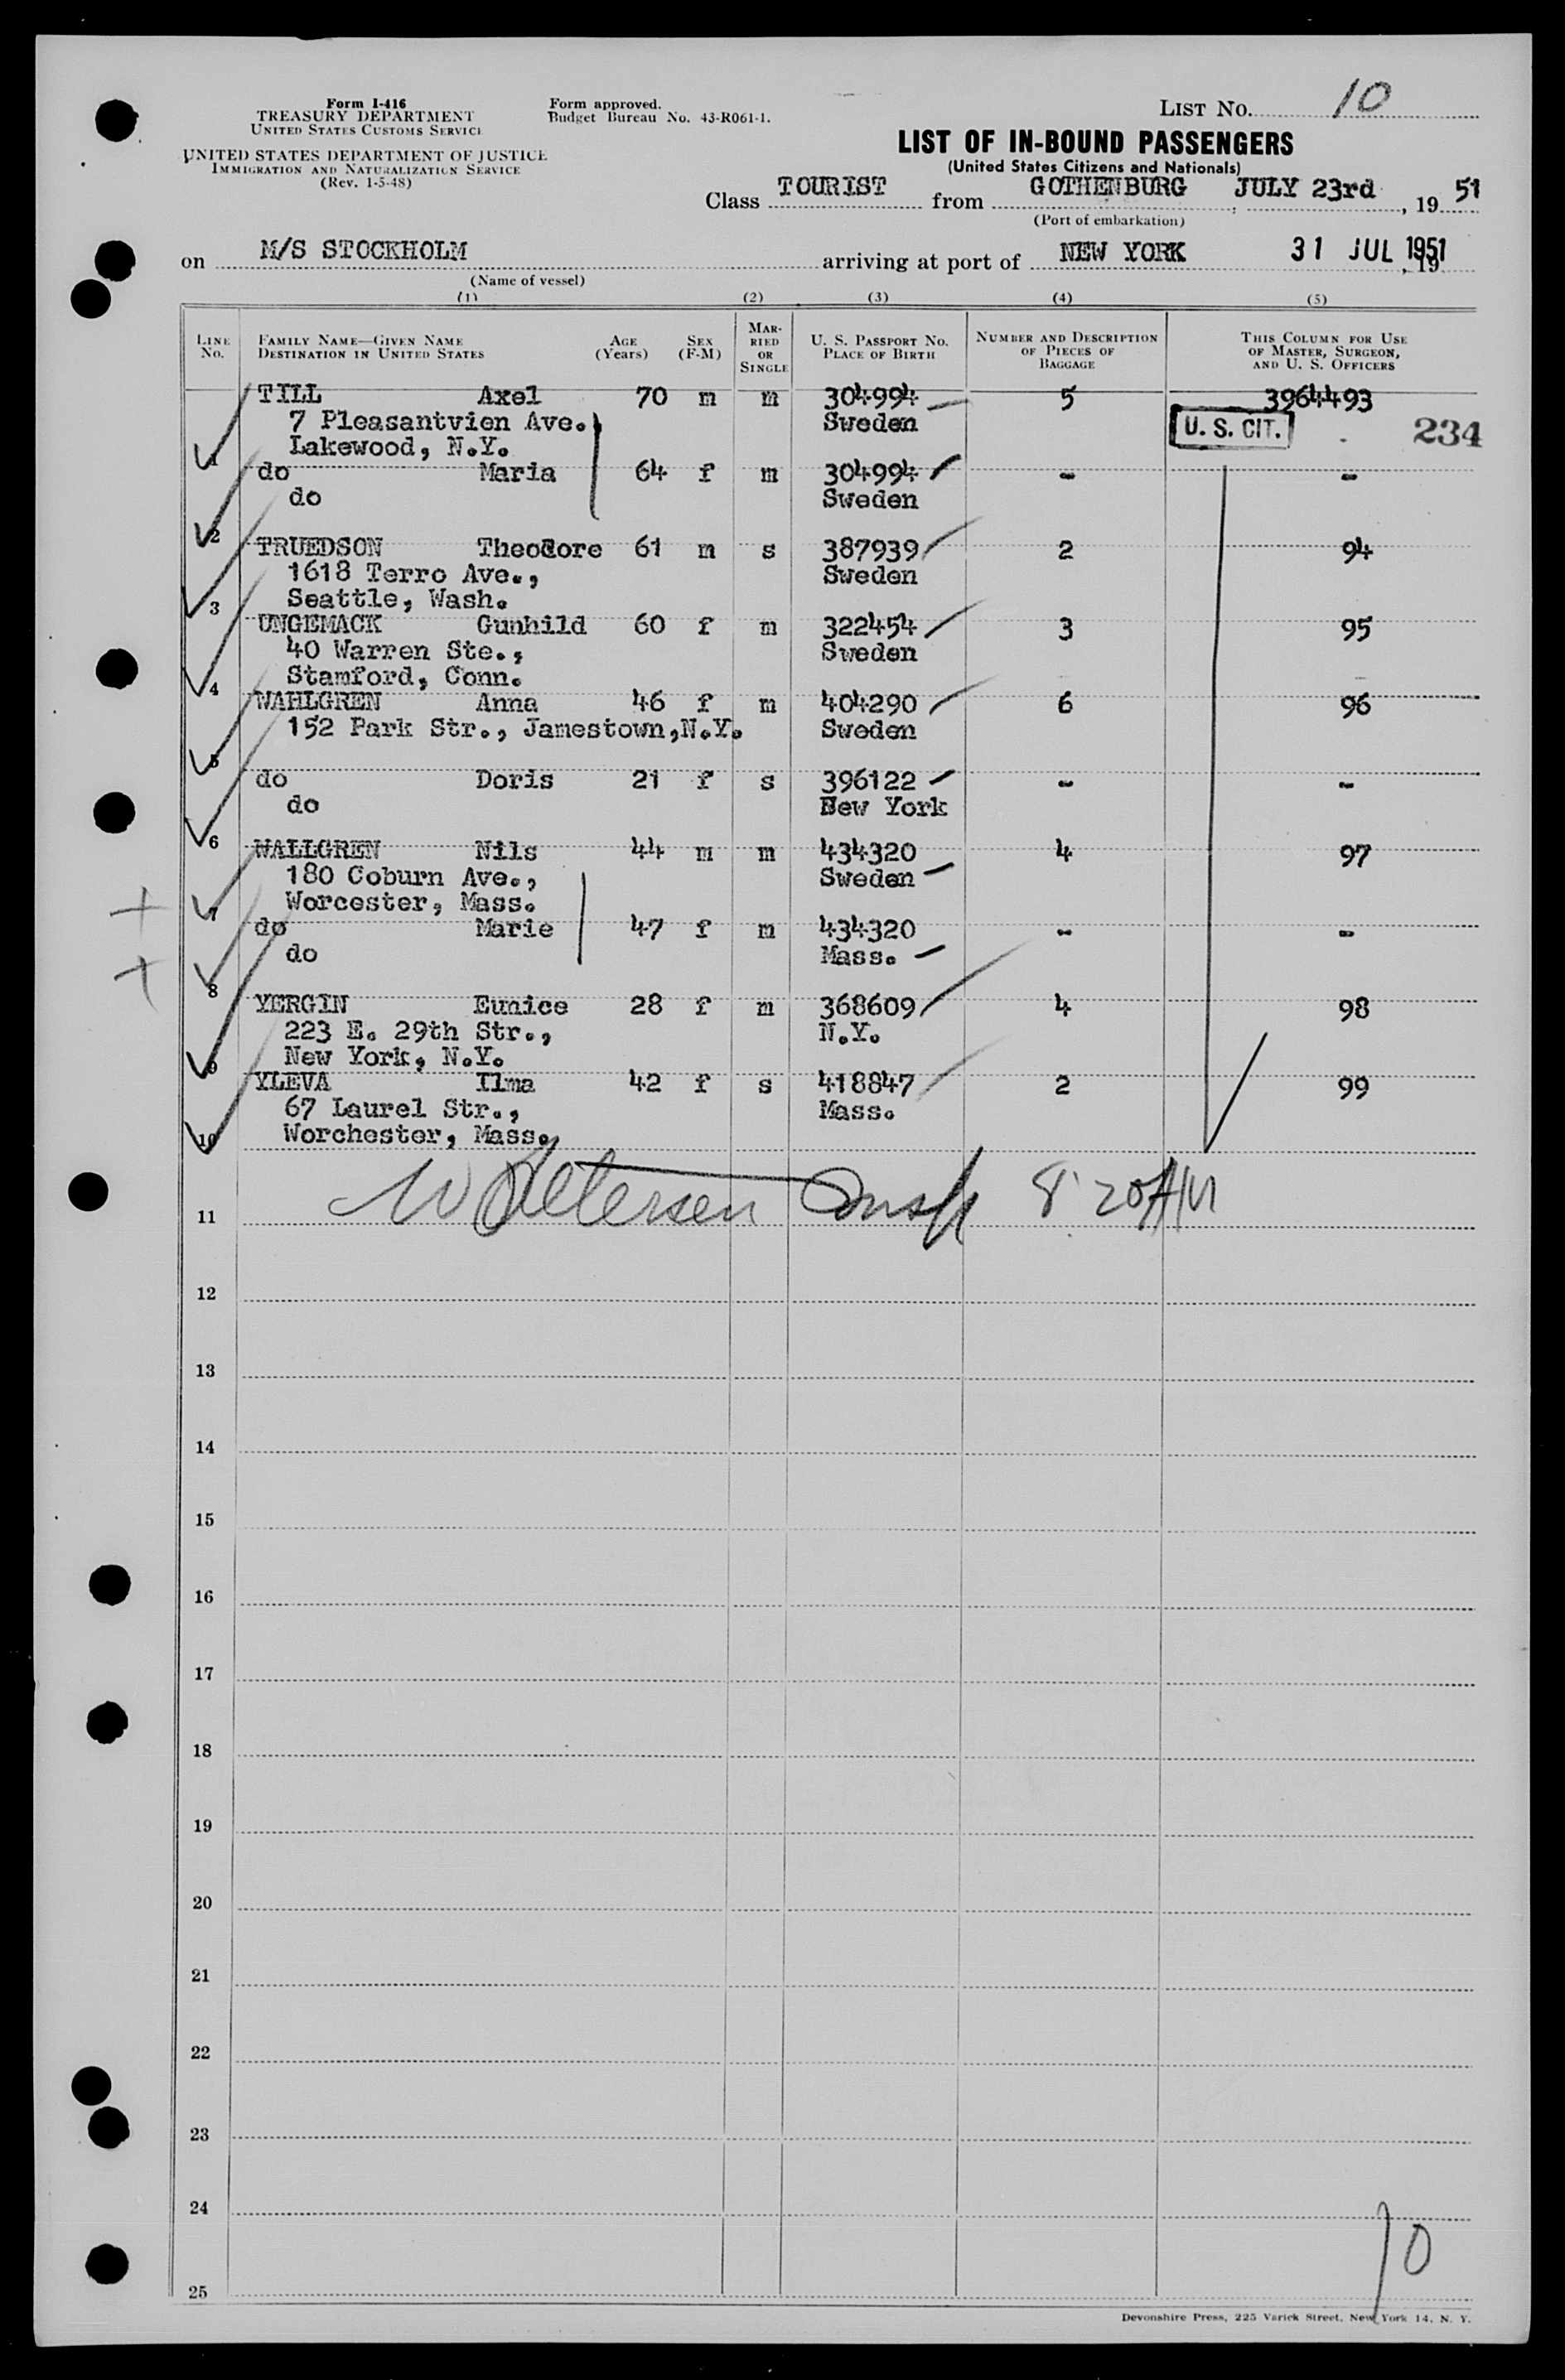 Form I-416
TREASURY DEPARTMENT
UNITED STATES CUSTOMS SERVICE
UNITED STATES DEPARTMENT OF JUSTICE
IMMIGRATION AND NATURALIZATION SERVICE
(Rev. 1-5-48)
Form approved.
Budget Bureau No. 43-R061-1.
LIST No. 10
LIST OF IN-BOUND PASSENGERS
(United States Citizens and Nationals)
Class TOURIST from GOTHENBURG, JULY 23rd, 19 51
(Port of embarkation)
on M/S STOCKHOLM arriving at port of NEW YORK 31 JUL 1951, 19
(Name of vessel)
(1) (2) (3) (4) (5)
LINE No. FAMILY NAME—GIVEN NAME DESTINATION IN UNITED STATES AGE (Years) SEX (F-M) MARRIED OR SINGLE U. S. PASSPORT No. PLACE OF BIRTH NUMBER AND DESCRIPTION OF PIECES OF BAGGAGE THIS COLUMN FOR USE OF MASTER, SURGEON, AND U. S. OFFICERS
TILL Axel 70 m m 304994 5 3964493
7 Pleasantvien Ave. Sweden U. S. CIT. 234
Lakewood, N.Y.
1 do Maria 64 f m 304994 - -
do Sweden
2 TRUEDSON Theodore 61 m s 387939 2 94
1618 Terro Ave., Sweden
Seattle, Wash.
3 UNGEMACK Gunhild 60 f m 322454 3 95
40 Warren Ste., Sweden
Stamford, Conn.
4 WAHLGREN Anna 46 f m 404290 6 96
152 Park Str., Jamestown,N.Y. Sweden
5 do Doris 21 f s 396122 - -
do New York
6 WALLGREN Nils 44 m m 434320 4 97
180 Coburn Ave., Sweden
Worcester, Mass.
7 do Marie 47 f m 434320 - -
do Mass.
8 YERGIN Eunice 28 f m 368609 4 98
223 E. 29th Str., N.Y.
New York, N.Y.
9 YLEVA Ilma 42 f s 418847 2 99
67 Laurel Str., Mass.
Worchester, Mass.
10
W Petersen Insp 8:20 AM
11
12
13
14
15
16
17
18
19
20
21
22
23
24
25
10
Devonshire Press, 225 Varick Street, New York 14, N. Y.